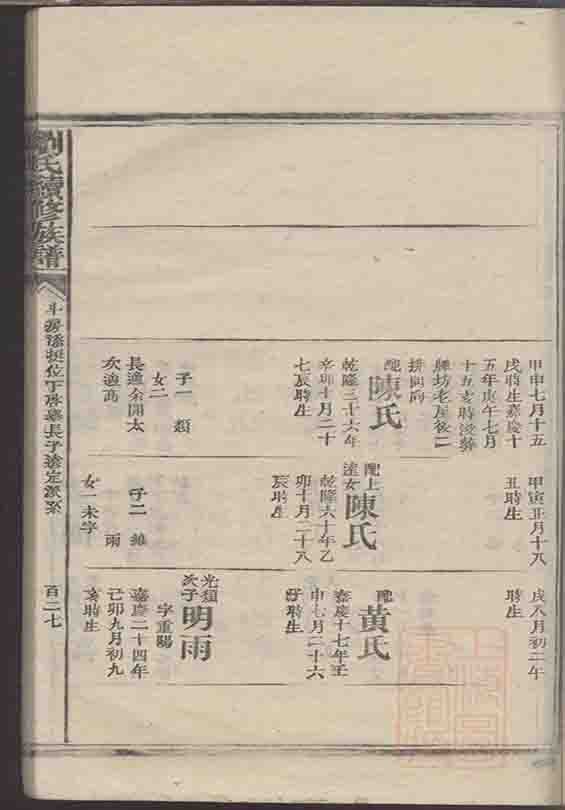 甲申七月十五
戌時生嘉慶十
五年庚午七月
十五亥時歿葬
牌坊老屋後二
排同向
配陳氏
乾隆三十六年
辛卯十月二十
七辰時生
子一 類
女二
長適余開太
次適高
甲寅正月十八
丑時生
配上達女陳氏
乾隆六十年乙
卯十月二十八
辰時生
子二 雄
雨
女一未字
戌八月初二午
時生
配黃氏
嘉慶十七年壬
申七月二十六
時生
光類次子明雨
字重陽
嘉慶二十四年
己卯九月初九
亥時生
劉氏續修族譜
斗房位下長子遠定派系
百二七